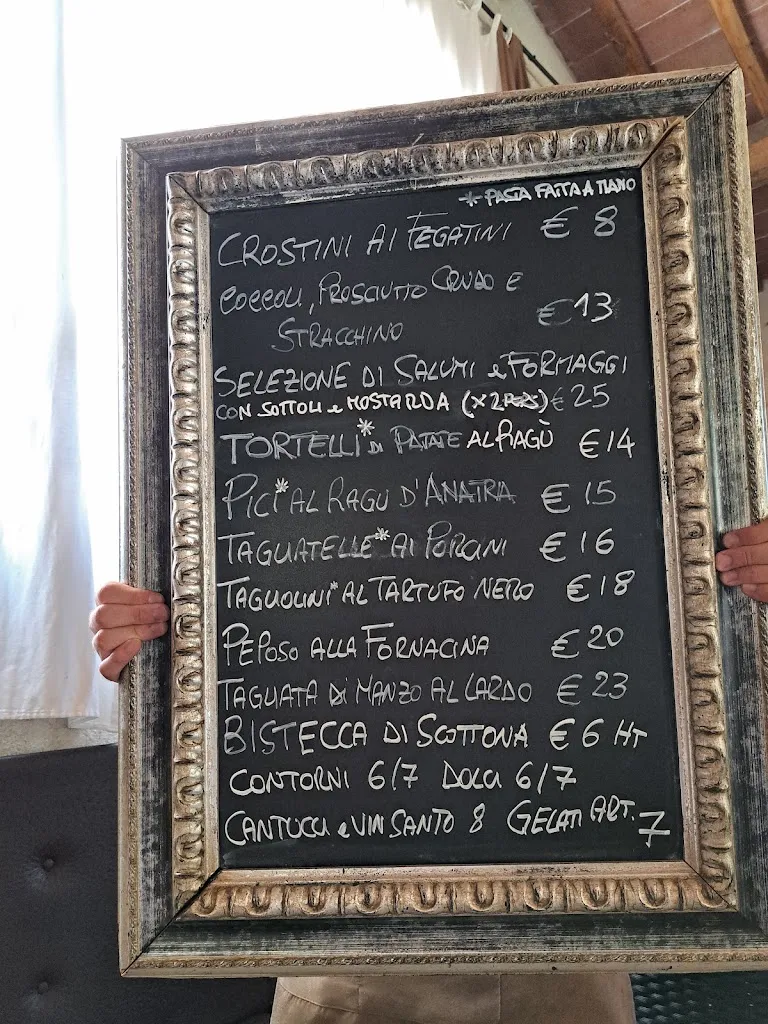 * PASTA FATTA A MANO
CROSTINI AI FEGATINI € 8
COCCOLI, PROSCIUTTO CRUDO E
STRACCHINO € 13
SELEZIONE DI SALUMI e FORMAGGI
CON SOTTOLI e MOSTARDA (x2 PERS) € 25
TORTELLI* DI PATATE AL RAGÙ € 14
PICI* AL RAGU D'ANATRA € 15
TAGLIATELLE* AI PORCINI € 16
TAGLIOLINI* AL TARTUFO NERO € 18
PEPOSO ALLA FORNACINA € 20
TAGLIATA DI MANZO AL LARDO € 23
BISTECCA DI SCOTTONA € 6 HT
CONTORNI 6/7 DOLCI 6/7
CANTUCCI e VIN SANTO 8 GELATI ART. 7